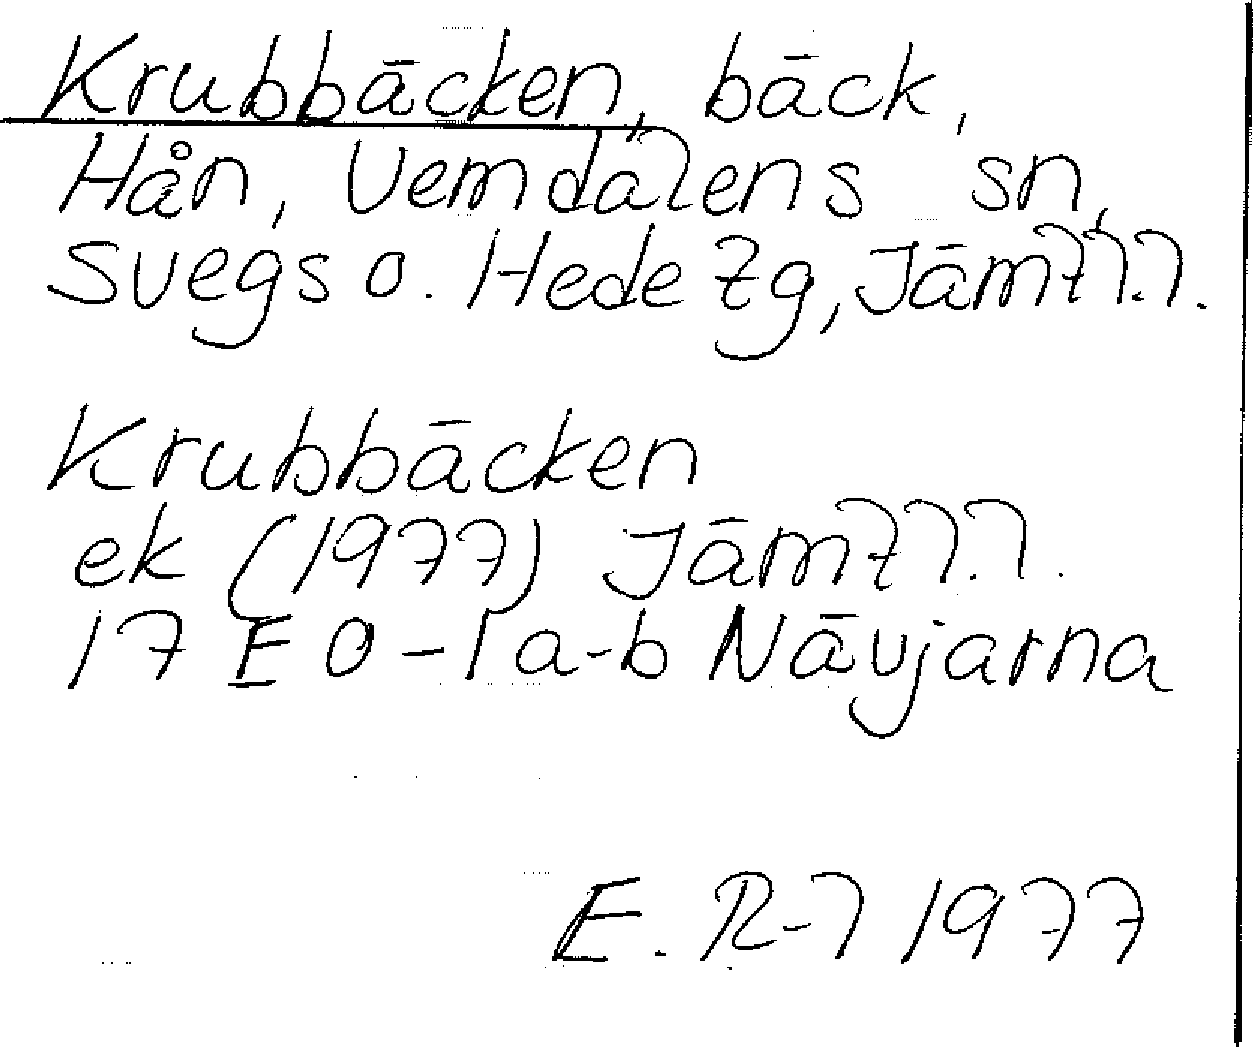 Krubbäcken, bäck,
Hån, Vemdalens sn,
Svegs o. Hede tg, Jämtl.l.
Krubbäcken
ek (1977) Jämtl.l.
17 E 0-1 a-b Nävjarna
E. R-l 1977